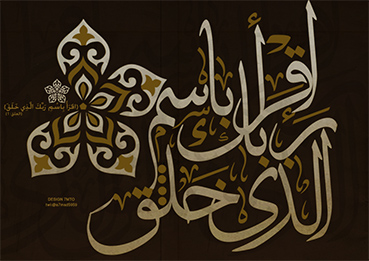 اقرأ باسم
ربك
الذي خلق
﴿اقْرَأْ بِاسْمِ رَبِّكَ الَّذِي خَلَقَ﴾
DESIGN 7MTO